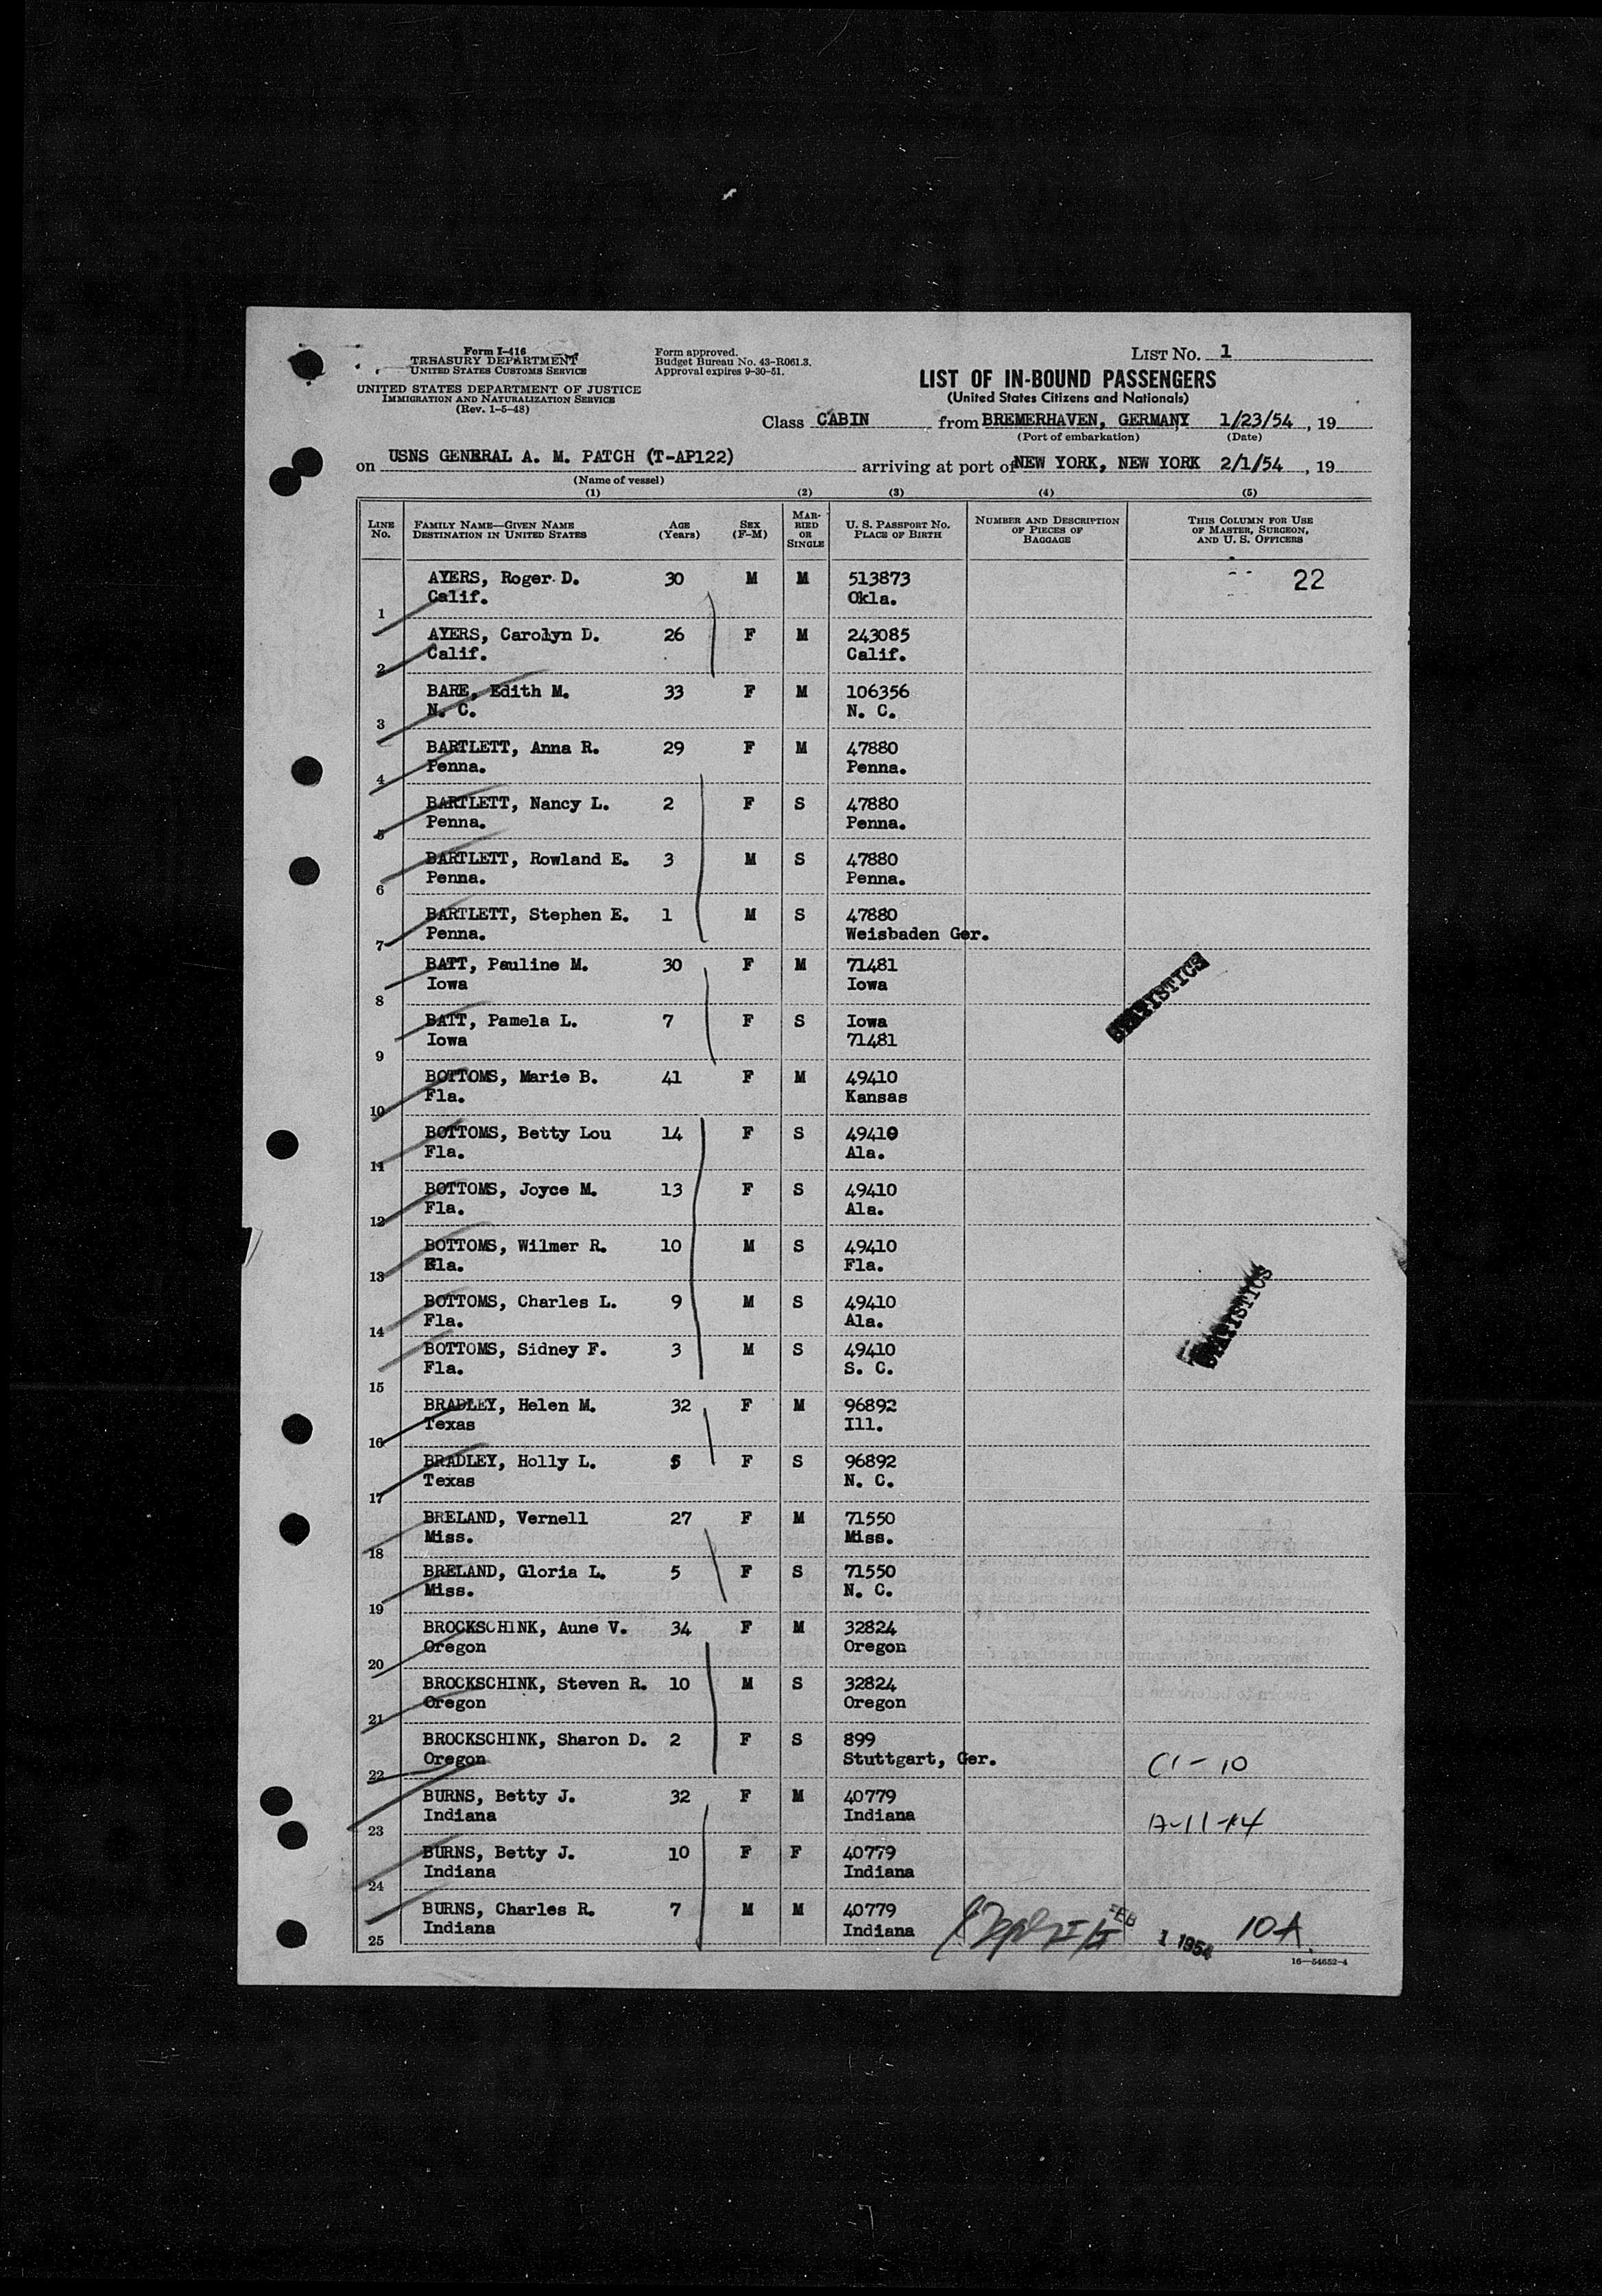 Form I-416
TREASURY DEPARTMENT
UNITED STATES CUSTOMS SERVICE
UNITED STATES DEPARTMENT OF JUSTICE
IMMIGRATION AND NATURALIZATION SERVICE
(Rev. 1-5-48)
Form approved.
Budget Bureau No. 43-R061.3.
Approval expires 9-30-51.
LIST NO. 1
LIST OF IN-BOUND PASSENGERS
(United States Citizens and Nationals)
Class CABIN from BREMERHAVEN, GERMANY 1/23/54, 19
(Port of embarkation) (Date)
on USNS GENERAL A. M. PATCH (T-AP122) arriving at port of NEW YORK, NEW YORK 2/1/54, 19
(Name of vessel)
(1) (2) (3) (4) (5)
LINE NO. FAMILY NAME—GIVEN NAME DESTINATION IN UNITED STATES AGE (Years) SEX (F-M) MARRIED OR SINGLE U. S. PASSPORT NO. PLACE OF BIRTH NUMBER AND DESCRIPTION OF PIECES OF BAGGAGE THIS COLUMN FOR USE OF MASTER, SURGEON, AND U. S. OFFICERS
AYERS, Roger D. 30 M M 513873 22
1 Calif. Okla.
AYERS, Carolyn D. 26 F M 243085
2 Calif. Calif.
BARE, Edith M. 33 F M 106356
3 N. C. N. C.
BARTLETT, Anna R. 29 F M 47880
4 Penna. Penna.
BARTLETT, Nancy L. 2 F S 47880
5 Penna. Penna.
BARTLETT, Rowland E. 3 M S 47880
6 Penna. Penna.
BARTLETT, Stephen E. 1 M S 47880
7 Penna. Weisbaden Ger.
BATT, Pauline M. 30 F M 71481
8 Iowa Iowa
BATT, Pamela L. 7 F S Iowa
9 Iowa 71481
STATISTICS
BOTTOMS, Marie B. 41 F M 49410
10 Fla. Kansas
BOTTOMS, Betty Lou 14 F S 49410
11 Fla. Ala.
BOTTOMS, Joyce M. 13 F S 49410
12 Fla. Ala.
BOTTOMS, Wilmer R. 10 M S 49410
13 Fla. Fla.
BOTTOMS, Charles L. 9 M S 49410
14 Fla. Ala.
STATISTICS
BOTTOMS, Sidney F. 3 M S 49410
15 Fla. S. C.
BRADLEY, Helen M. 32 F M 96892
16 Texas Ill.
BRADLEY, Holly L. 5 F S 96892
17 Texas N. C.
BRELAND, Vernell 27 F M 71550
18 Miss. Miss.
BRELAND, Gloria L. 5 F S 71550
19 Miss. N. C.
BROCKSCHINK, Aune V. 34 F M 32824
20 Oregon Oregon
BROCKSCHINK, Steven R. 10 M S 32824
21 Oregon Oregon
BROCKSCHINK, Sharon D. 2 F S 899
22 Oregon Stuttgart, Ger. C1-10
BURNS, Betty J. 32 F M 40779
23 Indiana Indiana A-11-14
BURNS, Betty J. 10 F F 40779
24 Indiana Indiana
BURNS, Charles R. 7 M M 40779
25 Indiana Indiana FEB 1 1954 10A
16—54652-4